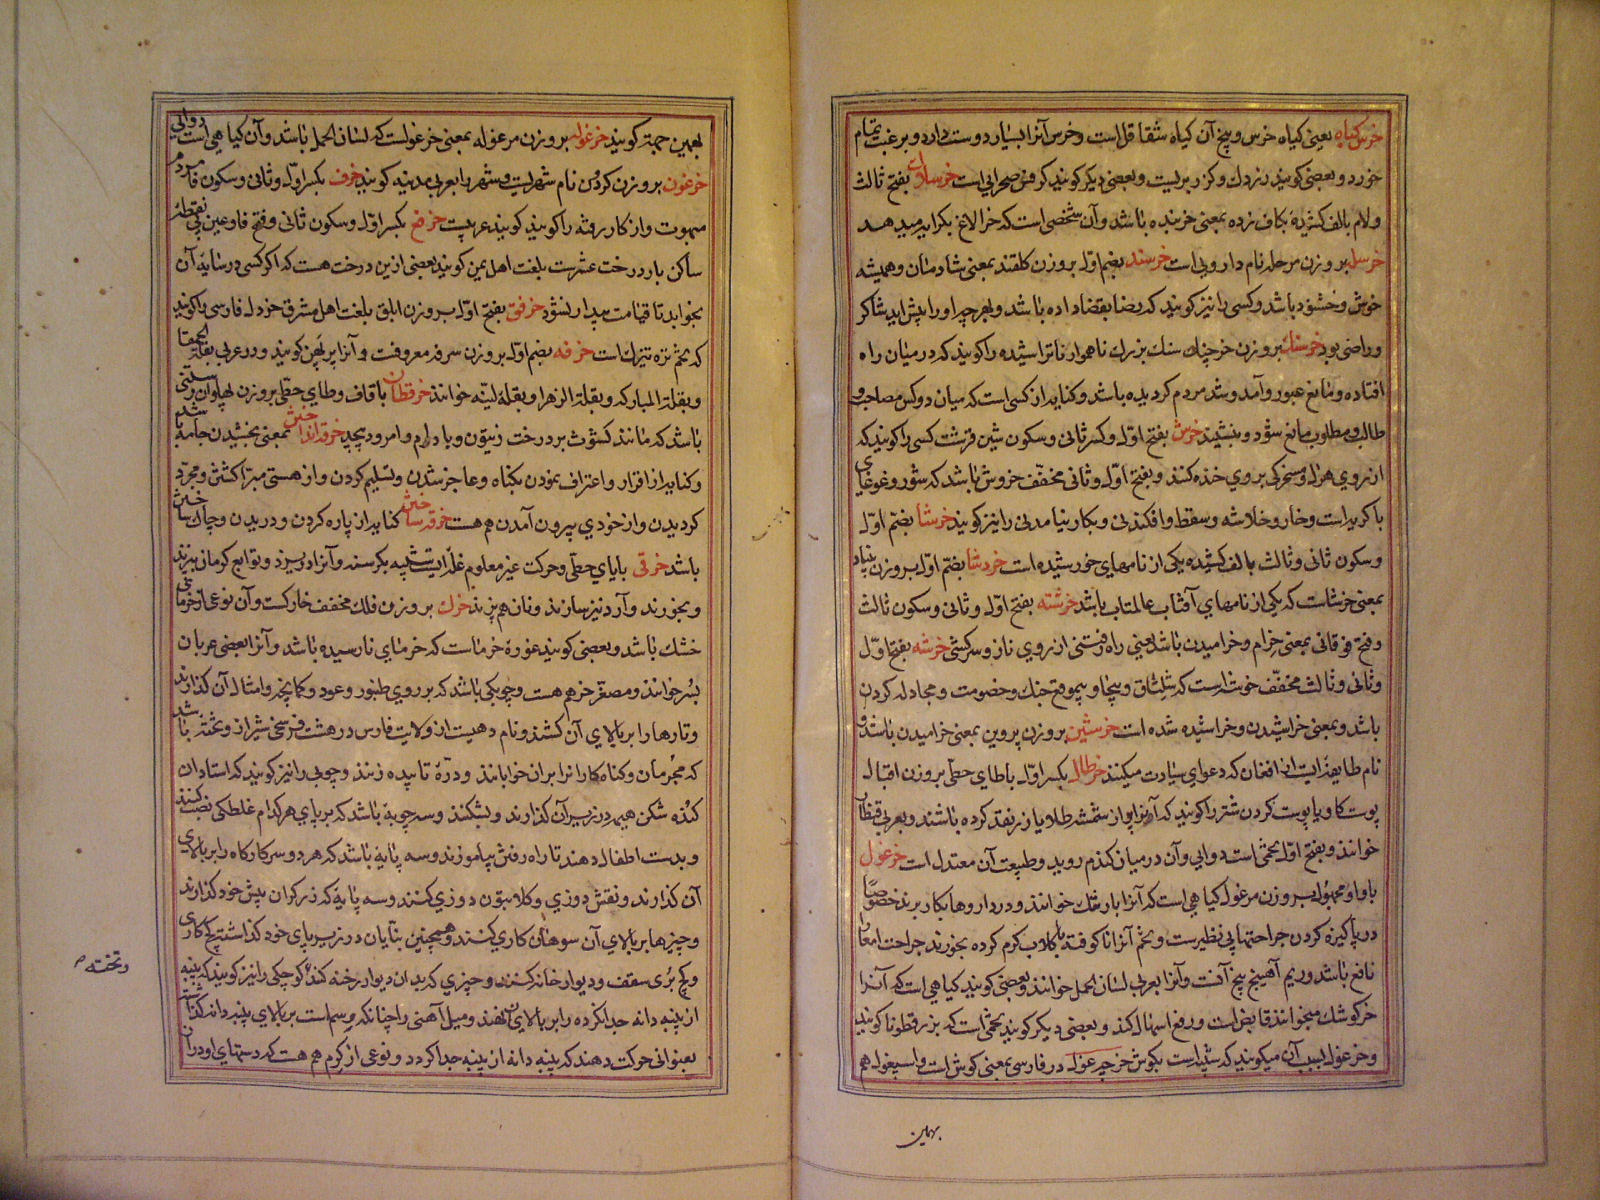 خرس کیاه یعنی کیاه خرس و بیخ آن کیاه شقاقل است و خرس آنرا بسیار دوست دارد و برغبت تمام
خورد و بعضی کویند زردك و کزر بریست و بعضی دیکر کویند کرفس صحرایی است خرسلای بفتح ثالث
و لام بالف کشیده بکاف زده بمعنی خربنده باشد و آن شخصی است که خر الاغ بکرایه میدهد
خرسل بر وزن مرحله نام دارویی است خرسند بضم اول بر وزن کلقند بمعنی شادمان و همیشه
خوش و خشنود باشد و کسی را نیز کویند که رضا بقضا داده باشد و بهرچه او را پیش اید شاکر
و راضی بود خرسنك بر وزن خرچنك سنك بزرك ناهموار ناتراشیده را کویند که در میان راه
افتاده و مانع عبور و آمد و شد مردم کردیده باشد و کنایه از کسی است که میان دو کس مصاحب و
طالب و مطلوب مانع شود و بنشیند خرش بفتح اول و کسر ثانی و سکون شین قرشت کسی را کویند که
از روی هزل و مسخرکی بروی خنده کنند و بفتح اول و ثانی مخفف خروش باشد که شور و غوغای
با کریه است و خار و خلاشه و سقط و افکندنی و بکار نیامدنی را نیز کویند خرشا بضم اول
و سکون ثانی و ثالث بالف کشیده یکی از نامهای خورشیده است خردشا بضم اول بر وزن بنیاد
بمعنی خرشاست که یکی از نامهای آفتاب عالمتاب باشد خرشته بفتح اول و ثانی و سکون ثالث
و فتح فوقانی بمعنی خرام و خرامیدن باشد یعنی راه رفتنی از روی ناز و سرکشی خرشه بفتح اول
و ثانی و ثالث مخفف خرشه است که شلتاق و بیجا و بیموقع جنك و خصومت و مجادله کردن
باشد و بمعنی خراشیدن و خراشیده شده است خرشین بر وزن پروین بمعنی خرامیدن باشد و
نام طایفه ایست از افغان که دعوای سیادت میکنند خرطال بکسر اول باطای حطی بر وزن اقبال
پوست کاو یا پوست کردن شتر را کویند که آنرا پر از شمشه طلا و یا زر نقد کرده باشند و بعربی قنطار
خوانند و بفتح اول تخمی است دوایی و آن در میان کندم روید و طبیعت آن معتدل است خرغول
با واو مجهول بر وزن مرغول کیاهی است که آنرا بارتنك خوانند و در داروها بکار برند خصوصا
در پاکیزه کردن جراحتها بی نظیرست و تخم آنرا ناکوفته با کلاب کرم کرده بخورند جراحت امعا را
نافع باشد و ریم آهیبج بیخ آنست و آنرا بعربی لسان الحمل خوانند و بعضی کویند کیاهی است که آنرا
خرکوشك میخوانند قابض است و رفع اسهال کند و بعضی دیکر کویند تخمی است که بزرقطونا کویند
و خرغول بسبب آن میکویند که شبیه است بکوش خر چه غول در فارسی بمعنی کوش است و اسپغول هم
بهمین
بهمین جهة کویند خرغوله بر وزن مرغوله بمعنی خرغولست که لسان الحمل باشد و آن کیاهی است دوایی
خرغون بر وزن کردن نام شهریست و شهر را بعربی مدینه کویند خرف بکسر اول و ثانی و سکون فا مردم
مبهوت و از کار رفته را کویند کویند عربیست خرفع بکسر اول و سکون ثانی و فتح فا و عین بی نقطه
ساکن بار درخت عشرست بلغت اهل یمن کویند بعضی ازین درخت هست که اکر کسی در سایه آن
بخوابد تا قیامت بیدار نشود خرفق بفتح اول بر وزن ابلق بلغت اهل مشرق خردل فارسی را کویند
که تخم تره تیزك است خرفه بضم اول بر وزن سرفه معروفست و آنرا پرپهن کویند و در عربی بقلة الحمقا
و بقلة المبارکه و بقلة الزهرا و بقلهٔ لینه خوانند خرقطان باقاف و طای حطی بر وزن پهلوان رستنی
باشد که مانند کشوث بر درخت زیتون و بادام و امرود پیچد خرقه انداختن بمعنی بخشیدن جامه باشد
و کنایه از اقرار و اعتراف نمودن بکناه و عاجز شدن و تسلیم کردن و از هستی مبرا کشتن و مجرد
کردیدن و از خودی بیرون آمدن هم هست خرقه ساختن کنایه از پاره کردن و دریدن و چاك ساختن
باشد خرقی بایای حطی و حرکت غیر معلوم غله ایست شبیه بکرسنه و آنرا در یزد و توابع کرمان بپزند
و بخورند و آرد نیز سازند و نان هم پزند خرك بر وزن فلك مخفف خارکست و آن نوعی از خرمای
خشك باشد و بعضی کویند غورهٔ خرماست که خرمای نارسیده باشد و آنرا بعضی عربان
بسر خوانند و مصغر خر هم هست و چوبکی باشد که بر روی طنبور و عود و کمانچه و امثال آن کذارند
و تارها را بر بالای آن کشند و نام دهیست از ولایت فارس در هشت فرسخی شیراز و تخته باشد
که مجرمان و کناه کارانرا بران خوابانند و درّه تابیده زنند و چوبی را نیز کویند که استادان
کنده شکن هیمه در زیر آن کذارند و بشکنند و سه چوبه باشد که بر پای هر کدام غلطکی نصب کنند
و بدست اطفال دهند تا راه رفتن بیاموزند و سه پایه باشد که هر دو سر کارکاه را بر بالای
آن کذارند و نقش دوزی و کلابتون دوزی کنند و سه پایه که زرکران پیش خود کذارند
و چیزها بر بالای آن سوهان کاری کنند و همچنین بنایان در زیر پای خود کذاشته کچ کاری
و کچ بری سقف و دیوار خانه کنند و چیزی که بدان دیوار رخنه کنند و کوچکی را نیز کویند که پنبه
از پنبه دانه جدا کرده را بر بالای آن نهند و میل آهنی را چنانکه رسم است بر بالای پنبه دانه کذاشته
بعنوانی حرکت دهند که پنبه دانه از پنبه جدا کردد و نوعی از کرم هم هست که دستهای او دران
و تخته